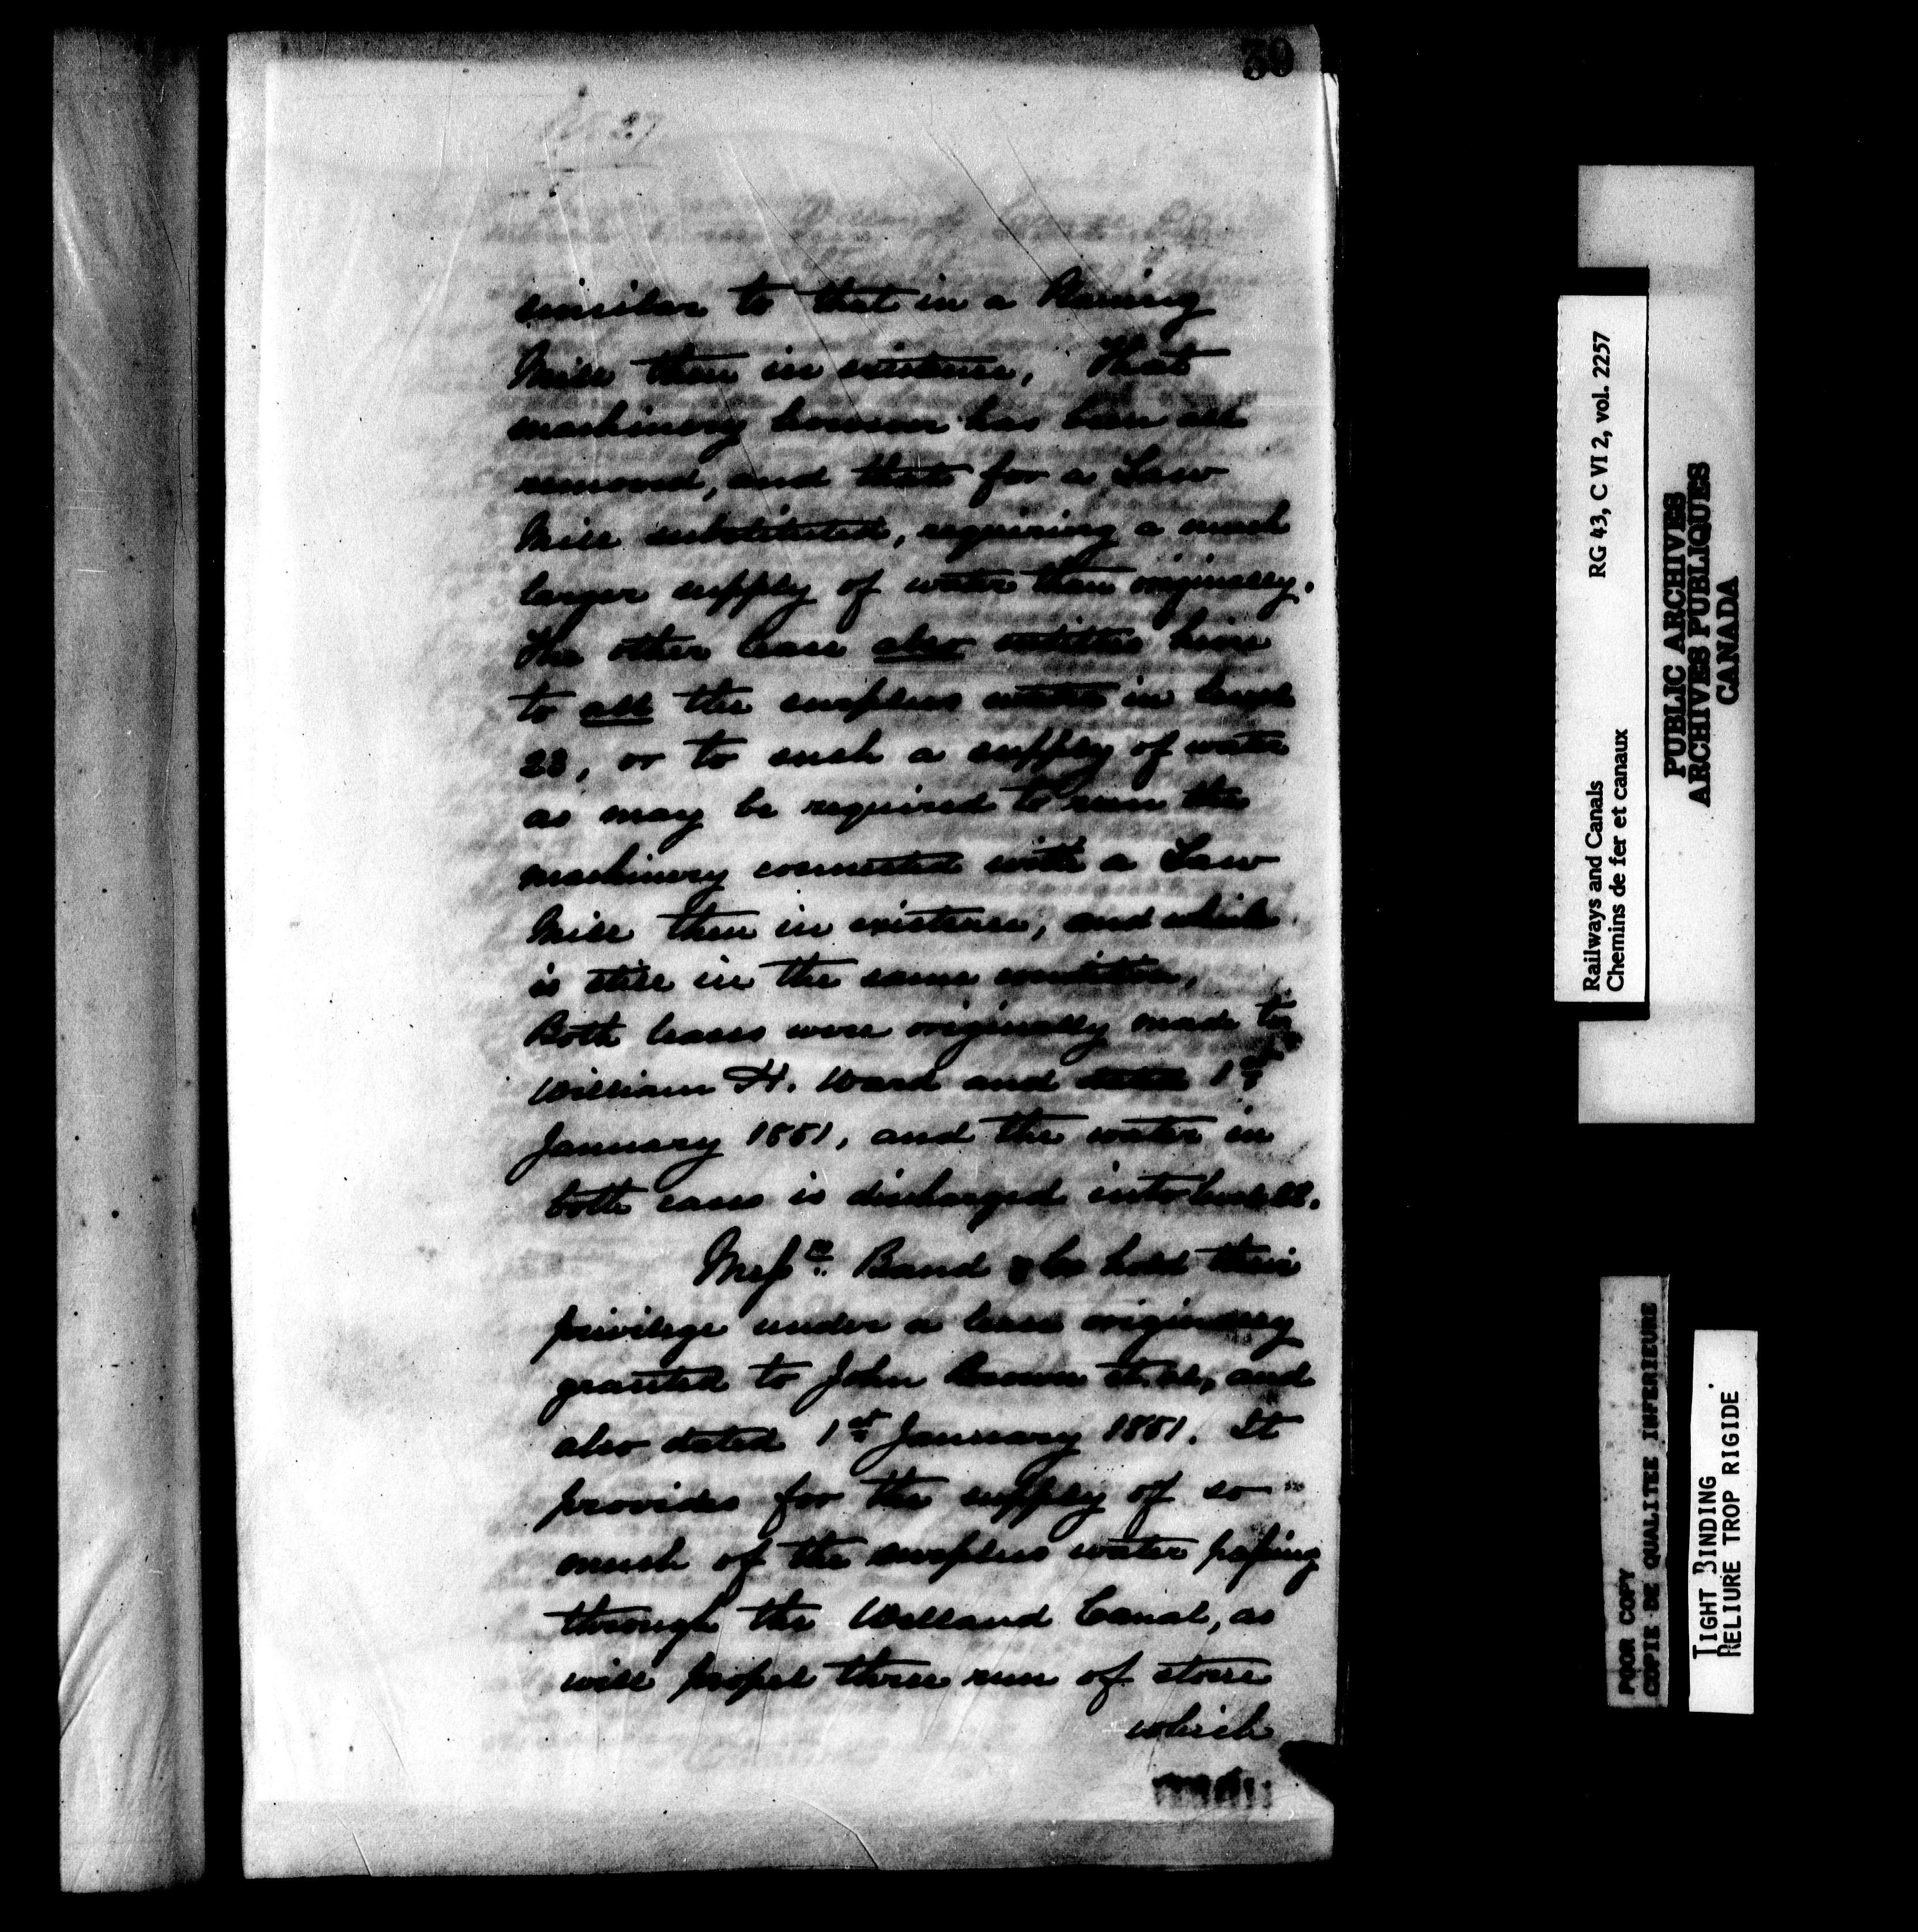 39
similar to that in a Planing
Mill then in existence, That
machinery however has been all
removed, and that for a Saw
Mill substituted, requiring a much
larger supply of water than originally.
The other lease also entitles him
to all the surplus water in level
23, or to such a supply of water
as may be required to run the
machinery connected with a Saw
Mill then in existence, and which
is still in the same condition,
Both leases were originally made to
William H. Ward and dated 1st
January 1881, and the water in
both cases is discharged into level 22.
Messrs. Band & Co hold their
privilege under a lease originally
granted to John Brown et al, and
also dated 1st January 1881. It
provides for the supply of so
much of the surplus water passing
through the Welland Canal, as
will propel three run of stone
which
Railways and Canals RG 43, C VI 2, vol. 2257
Chemins de fer et canaux
PUBLIC ARCHIVES
ARCHIVES PUBLIQUES
CANADA
POOR COPY
COPIE DE QUALITEE INFERIEURE
TIGHT BINDING
RELIURE TROP RIGIDE